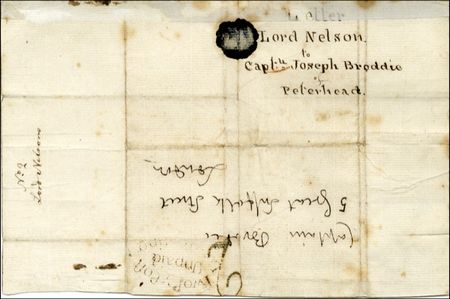 Letter
Lord Nelson.
to
Captn. Joseph Broddie
of
Peterhead.
No 2
Lord Nelsons
Captain Brodie
5 Great Suffolk Street
London
Unpaid